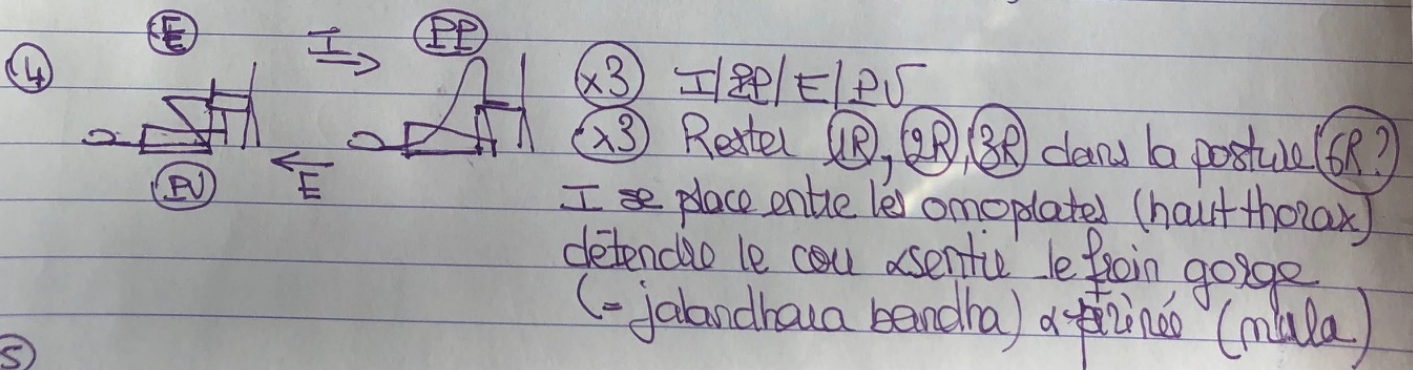 ④ E I PP ×3 I/PP/E/PV
×3 Rester 1R, 2R, 3R dans la posture (6R?)
PV E
I se place entre les omoplates (haut thorax)
détendre le cou &sentir le frein gorge
(= jalandhara bandha) & périnée (mula)
5